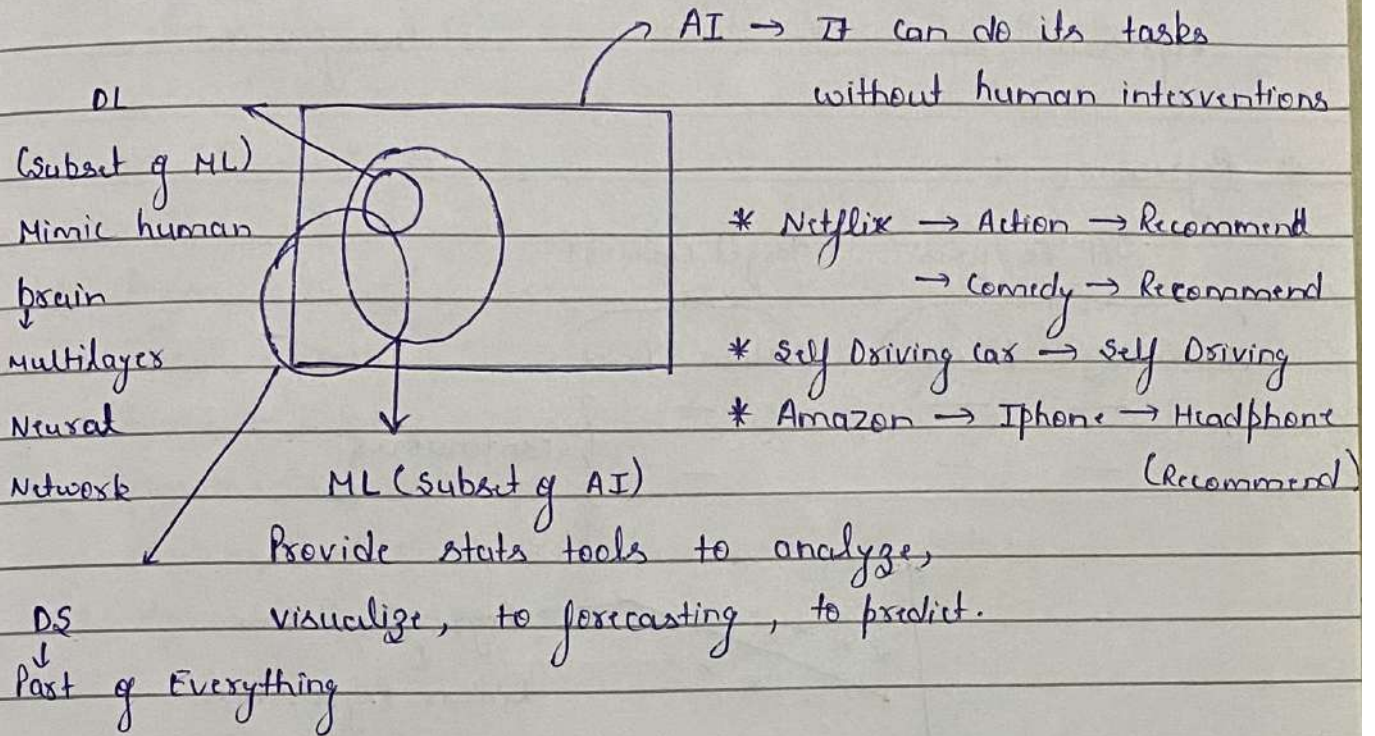 AI → It can do its tasks
without human interventions
DL
(Subset of ML)
Mimic human
brain
↓
Multilayer
Neural
Network
* Netflix → Action → Recommend
→ Comedy → Recommend
* Self Driving Car → Self Driving
* Amazon → Iphone → Headphone
(Recommend)
ML (Subset of AI)
Provide stats tools to analyze,
visualize, to forecasting, to predict.
DS
↓
Part of Everything